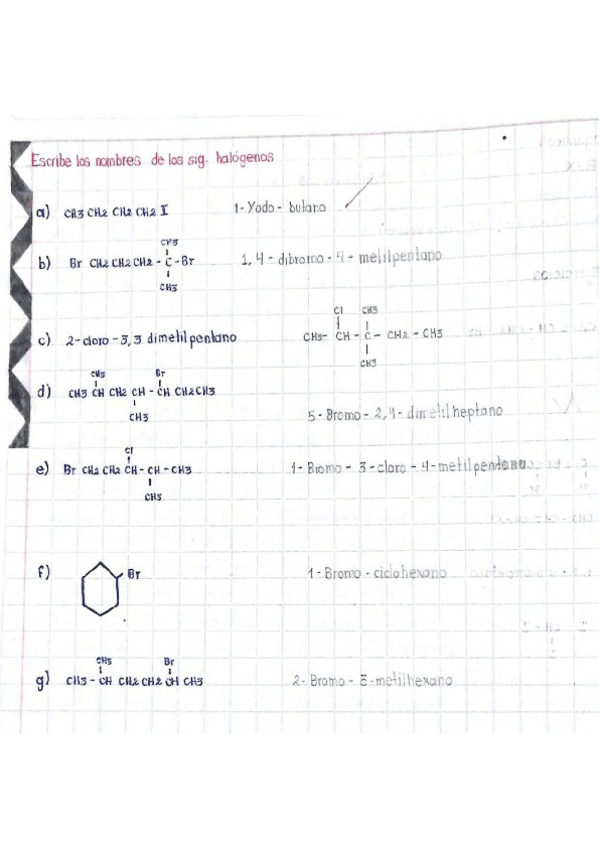 Escribe los nombres de los sig. halógenos
a) CH3 CH2 CH2 CH2 I 1-Yodo-butano
CH3
b) Br CH2 CH2 CH2 - C - Br 1,4-dibromo-4-metilpentano
CH3
Cl CH3
c) 2-cloro-3,3 dimetilpentano CH3- CH - C - CH2 - CH3
CH3
CH3 Br
d) CH3 CH CH2 CH - CH CH2CH3
CH3
5-Bromo-2,4-dimetilheptano
Cl
e) Br CH2 CH2 CH - CH - CH3 1-Bromo-3-cloro-4-metilpentano
CH3
f) Br 1-Bromo-ciclohexano
CH3 Br
g) CH3 - CH CH2 CH2 CH CH3 2-Bromo-5-metilhexano